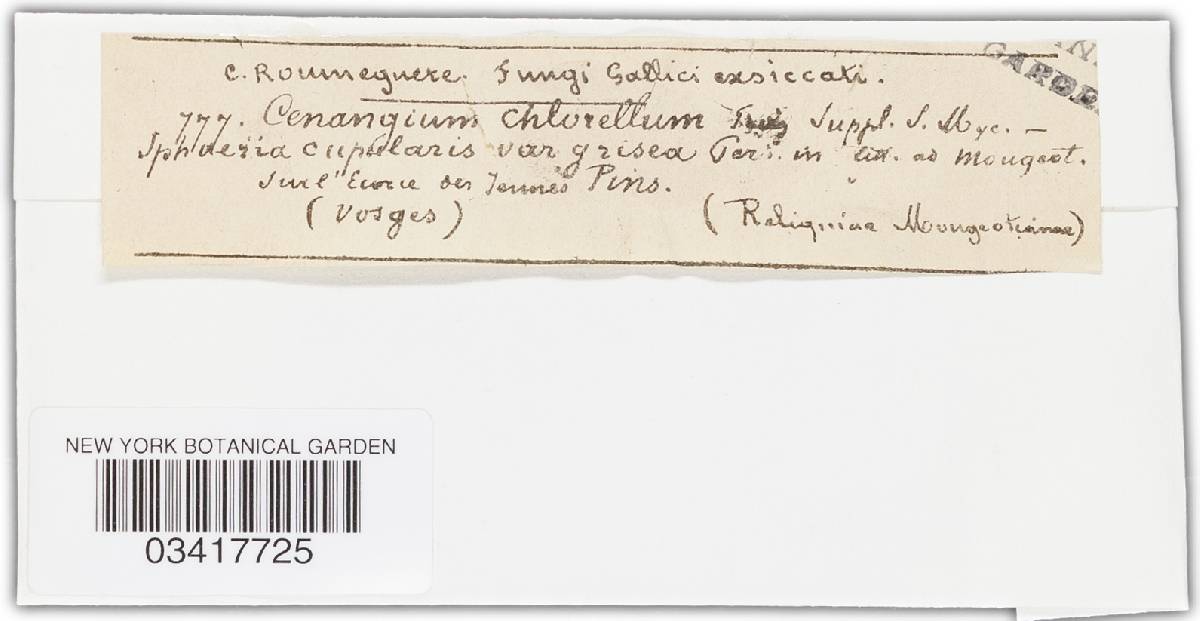 GARDE
C. Roumeguere. Fungi Gallici exsiccati.
777. Cenangium chlorellum Suppl. S. Myc. —
Sphaeria cupularis var grisea Pers. in litt. ad Mougeot.
Sur l'Ecorce des Jeunes Pins.
(Vosges) (Reliquiae Mougeotianae)
NEW YORK BOTANICAL GARDEN
03417725